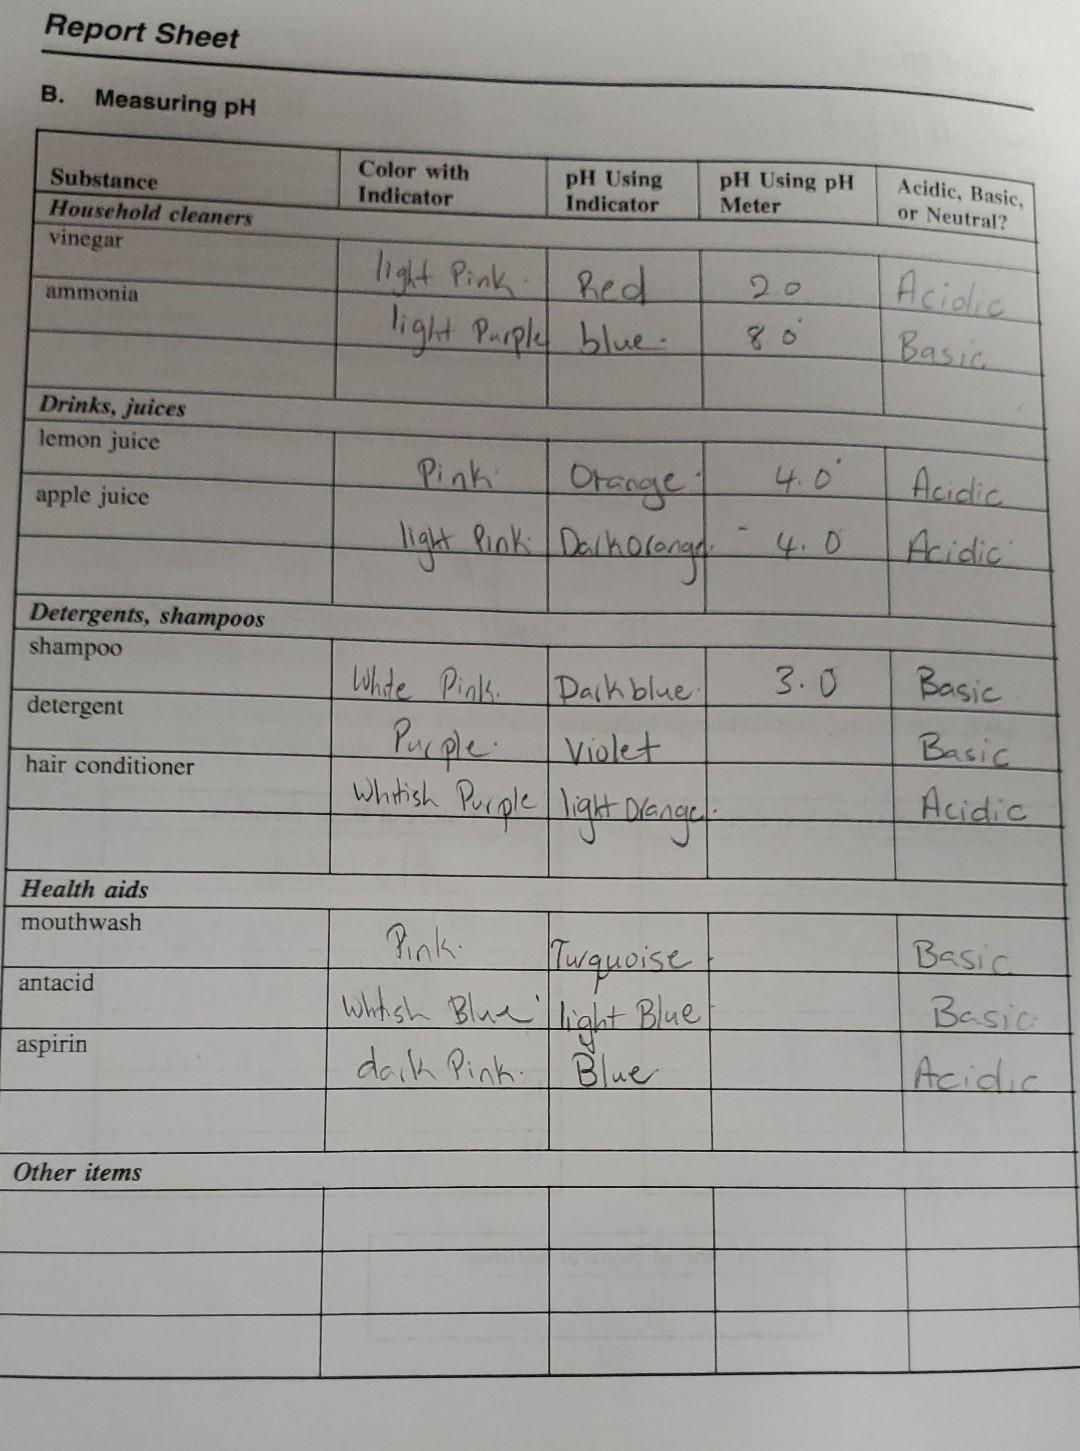 Report Sheet
B. Measuring pH
Substance
Color with Indicator
pH Using Indicator
pH Using pH Meter
Acidic, Basic, or Neutral?
Household cleaners
vinegar light Pink. Red 2.0 Acidic
ammonia light Purple blue. 8 0 Basic
Drinks, juices
lemon juice Pink Orange. 4.0 Acidic
apple juice light Pink. Dark orange. 4.0 Acidic
Detergents, shampoos
shampoo White Pink. Dark blue. 3.0 Basic
detergent Purple. Violet Basic
hair conditioner Whitish Purple light Orange. Acidic
Health aids
mouthwash Pink. Turquoise Basic
antacid Whtish Blue light Blue Basic
aspirin dark Pink. Blue Acidic
Other items